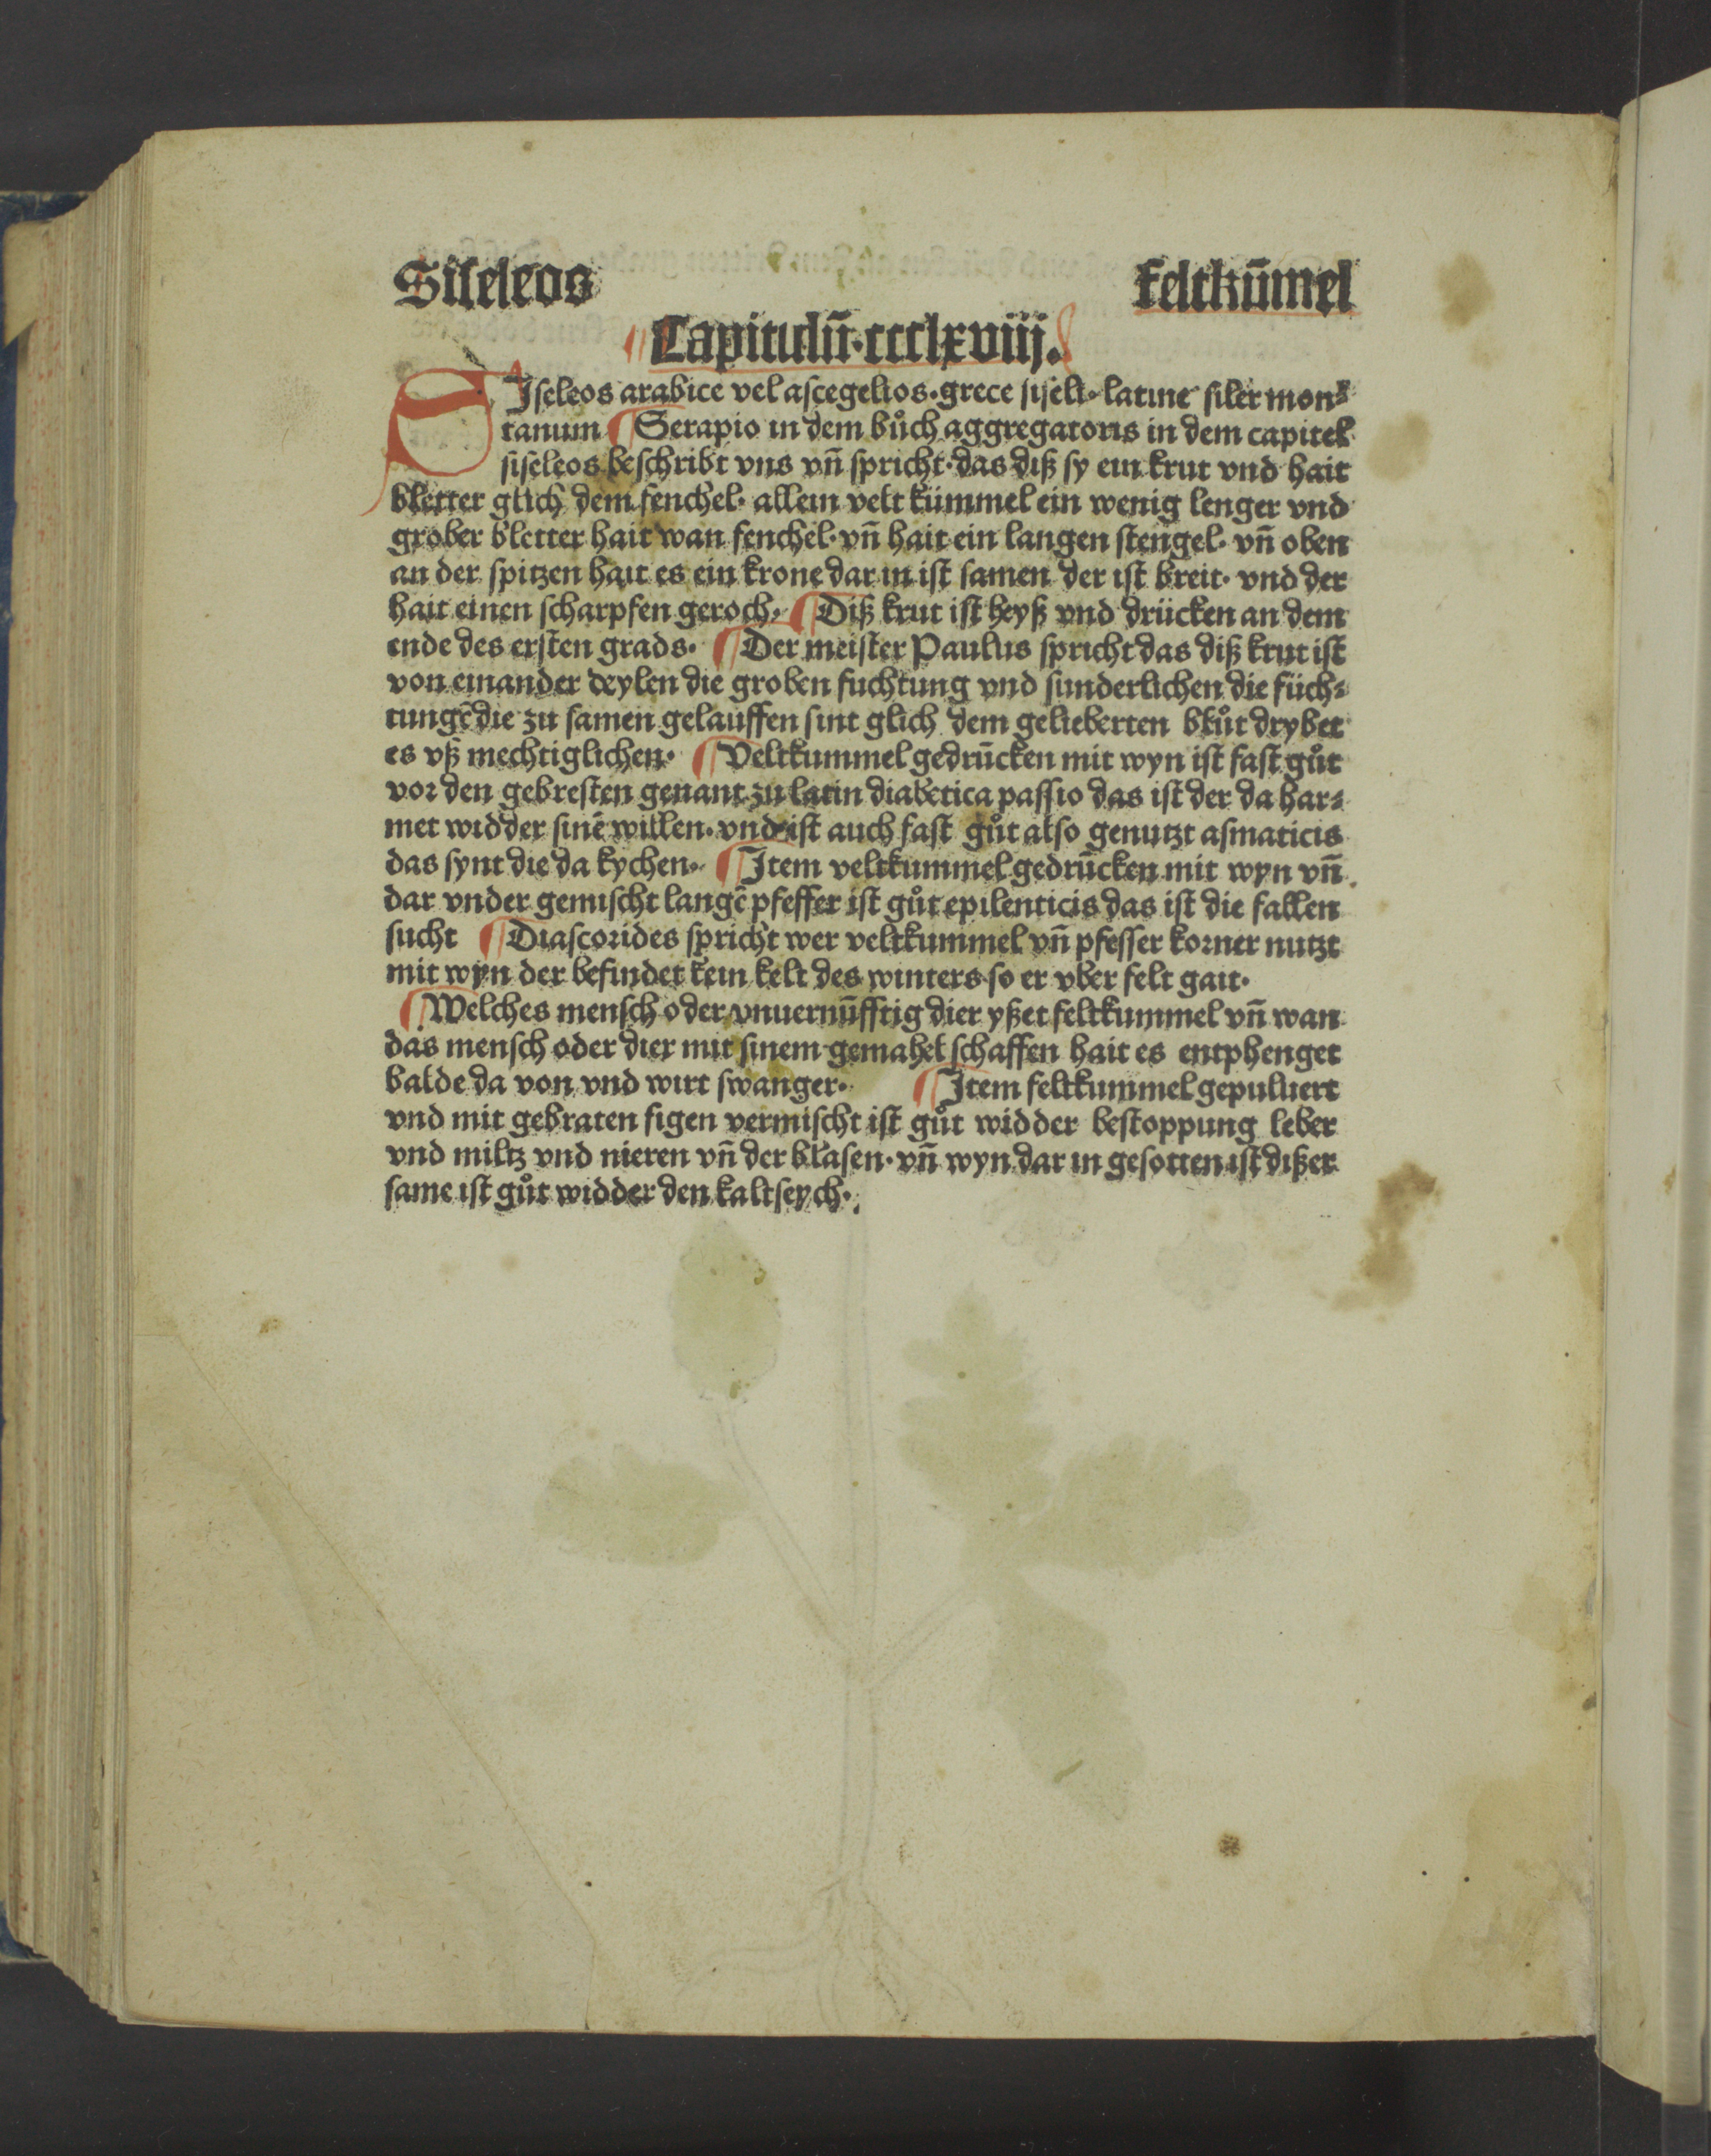 Siseleos feltkūmel
Capitulū·ccclxviij.
SIseleos arabice vel ascegelios·grece siseli·latine siler mon⸗
tanum ¶ Serapio in dem bůch aggregatoris in dem capitel
siseleos beschribt vns vñ spricht·das diß sy ein krut vnd hait
bletter glich dem fenchel· allein velt kümmel ein wenig lenger vnd
grober bletter hait wan fenchel·vñ hait ein langen stengel· vñ oben
an der spitzen hait es ein krone dar in ist samen der ist breit· vnd der
hait einen scharpfen geroch· ¶ Diß krut ist heyß vnd drücken an dem
ende des ersten grads· ¶ Der meister Paulus spricht das diß krut ist
von einander deylen die groben fuchtung vnd sunderlichen die füch⸗
tungē die zu samen gelauffen sint glich dem gelieberten blůt drybet
es vß mechtiglichen· ¶ Veltkummel gedrūcken mit wyn ist fast gůt
vor den gebresten genant zu latin diabetica passio das ist der da har⸗
met widder sinē willen·vnd ist auch fast gůt also genutzt asmaticis
das synt die da kychen· ¶ Item veltkummel gedrūcken mit wyn vñ
dar vnder gemischt langē pfeffer ist gůt epilenticis das ist die fallen
sucht ¶ Diascorides spricht wer veltkummel vñ pfeffer korner nutzt
mit wyn der befindet kein kelt des winters so er vber felt gait·
¶ Welches mensch oder vnuernūfftig dier yßet feltkummel vñ wan
das mensch oder dier mit sinem gemahel schaffen hait es entphenget
balde da von vnd wirt swanger· ¶ Item feltkummel gepuluert
vnd mit gebraten figen vermischt ist gůt widder bestoppung leber
vnd miltz vnd nieren vñ der blasen·vñ wyn dar in gesotten ist dißer
same ist gůt widder den kaltseych·